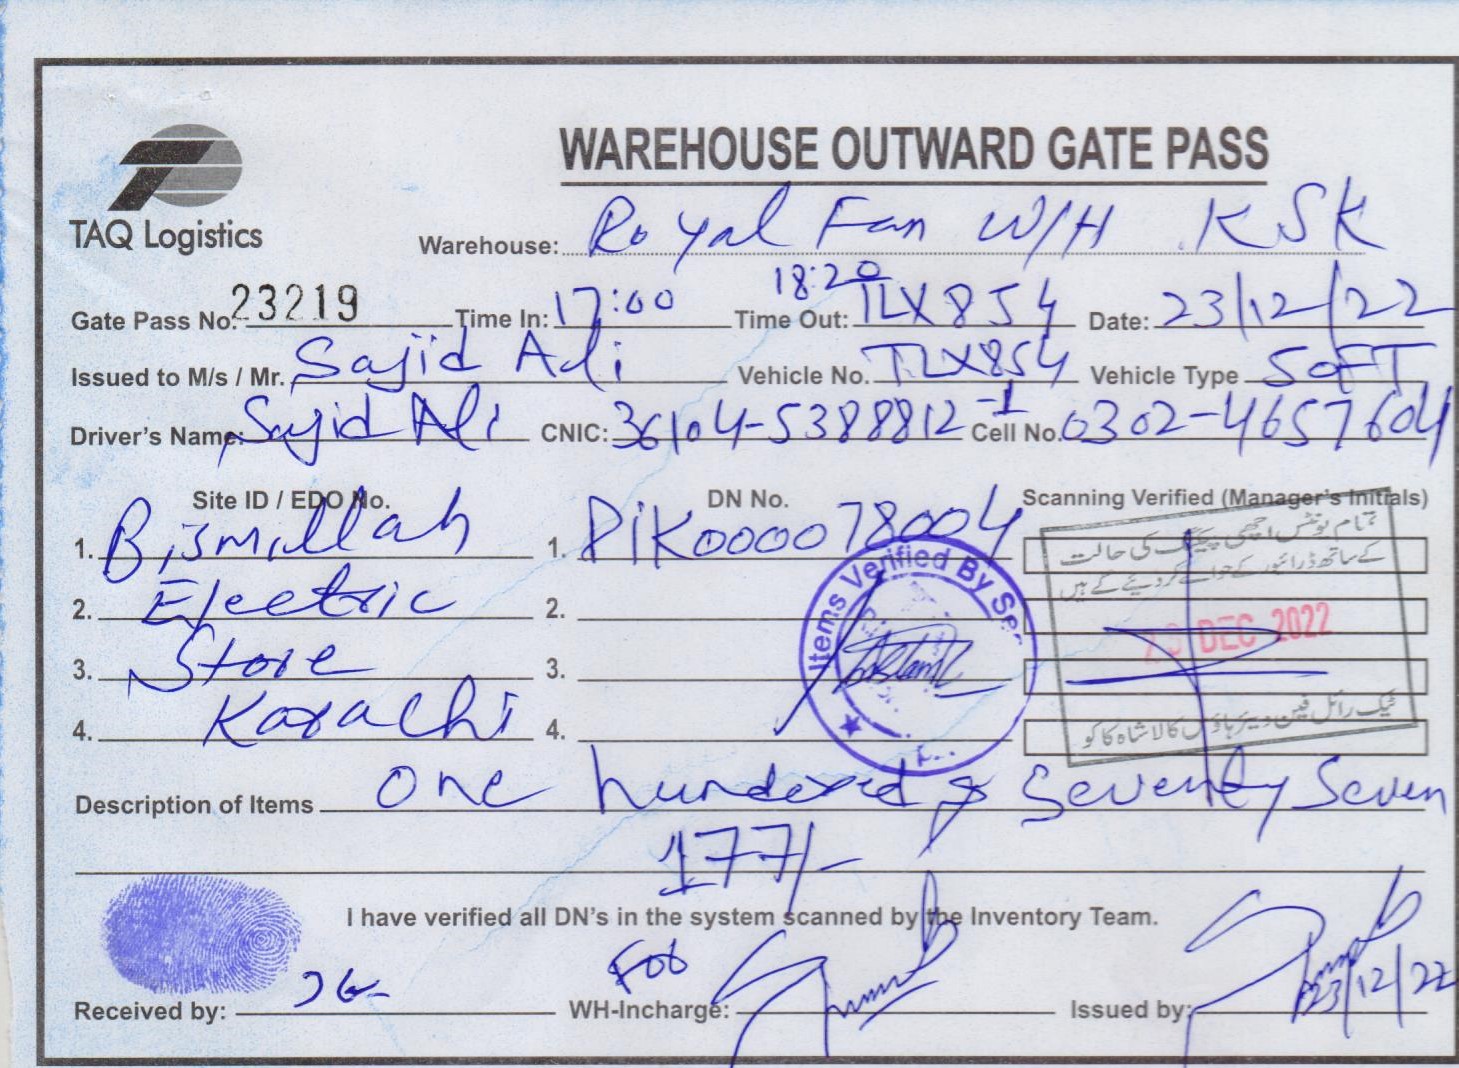 TAQ Logistics
WAREHOUSE OUTWARD GATE PASS
Warehouse: Royal Fan W/H KSK
18:20
Gate Pass No. 23219 Time In: 17:00 Time Out: TLX854 Date: 23/12/22
Issued to M/s / Mr. Sajid Ali Vehicle No. TLX854 Vehicle Type SOFT
Driver's Name: Sajid Ali CNIC: 36104-5388812-1 Cell No. 0302-4657604
Site ID / EDO No. DN No. Scanning Verified (Manager's Initials)
1. Bismillah 1. PIK000078004
2. Electric 2.
3. Store 3.
4. Karachi 4.
Items Verified By
تمام یونٹس اچھی پیکنگ کی حالت
کے ساتھ ڈرائیور کے حوالے کر دیئے گئے ہیں
23 DEC 2022
ٹیک رائل فین ویئر ہاؤس کالا شاہ کاکو
Description of Items One hundered & Seventy Seven
177/-
I have verified all DN's in the system scanned by the Inventory Team.
Received by: WH-Incharge: Issued by: 23/12/22